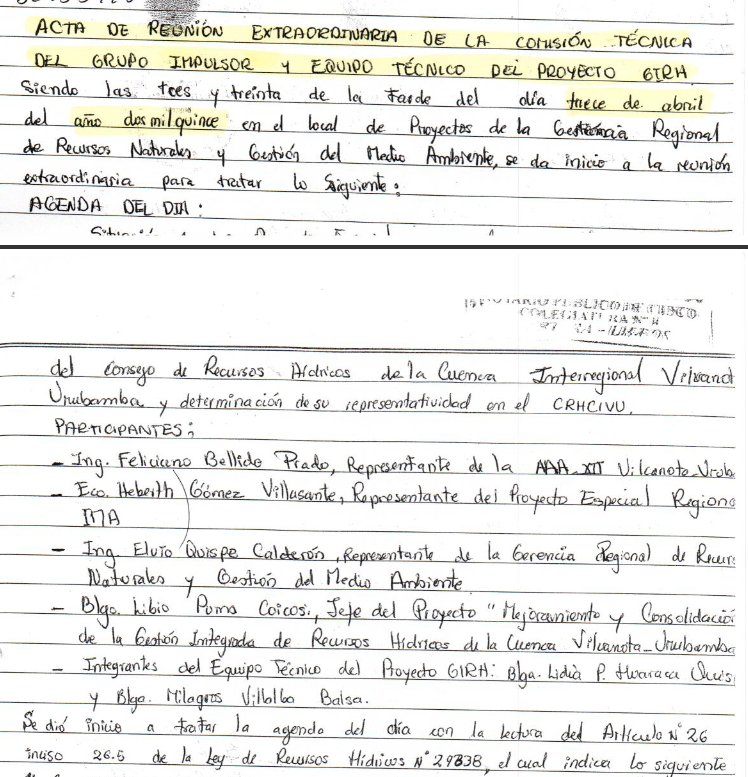 ACTA DE REUNIÓN EXTRAORDINARIA DE LA COMISIÓN TÉCNICA
DEL GRUPO IMPULSOR Y EQUIPO TÉCNICO DEL PROYECTO GIRH
Siendo las tres y treinta de la tarde del día trece de abril
del año dos mil quince en el local de Proyectos de la Gerencia Regional
de Recursos Naturales y Gestión del Medio Ambiente, se da inicio a la reunión
extraordinaria para tratar lo siguiente:
AGENDA DEL DIA:
NOTARIO PUBLICO DE CUSCO
del Consejo de Recursos Hídricos de la Cuenca Interregional Vilcanot
Urubamba y determinación de su representatividad en el CRHCIVU.
PARTICIPANTES:
- Ing. Feliciano Bellido Prado, Representante de la AAA-XII Vilcanota-Urub
- Eco. Heberth Gómez Villasante, Representante del Proyecto Especial Regiona
IMA
- Ing. Elvio Quispe Calderón, Representante de la Gerencia Regional de Recurs
Naturales y Gestión del Medio Ambiente
- Blgo. Libio Poma Coicos., Jefe del Proyecto "Mejoramiento y Consolidació
de la Gestión Integrada de Recursos Hídricos de la Cuenca Vilcanota-Urubamba
- Integrantes del Equipo Técnico del Proyecto GIRH: Blga. Lidia P. Huaraca
y Blgo. Milagros Villalba Balsa.
Se dió inicio a tratar la agenda del día con la lectura del Artículo N° 26
inciso 26.5 de la Ley de Recursos Hídricos N° 29338, el cual indica lo siguiente